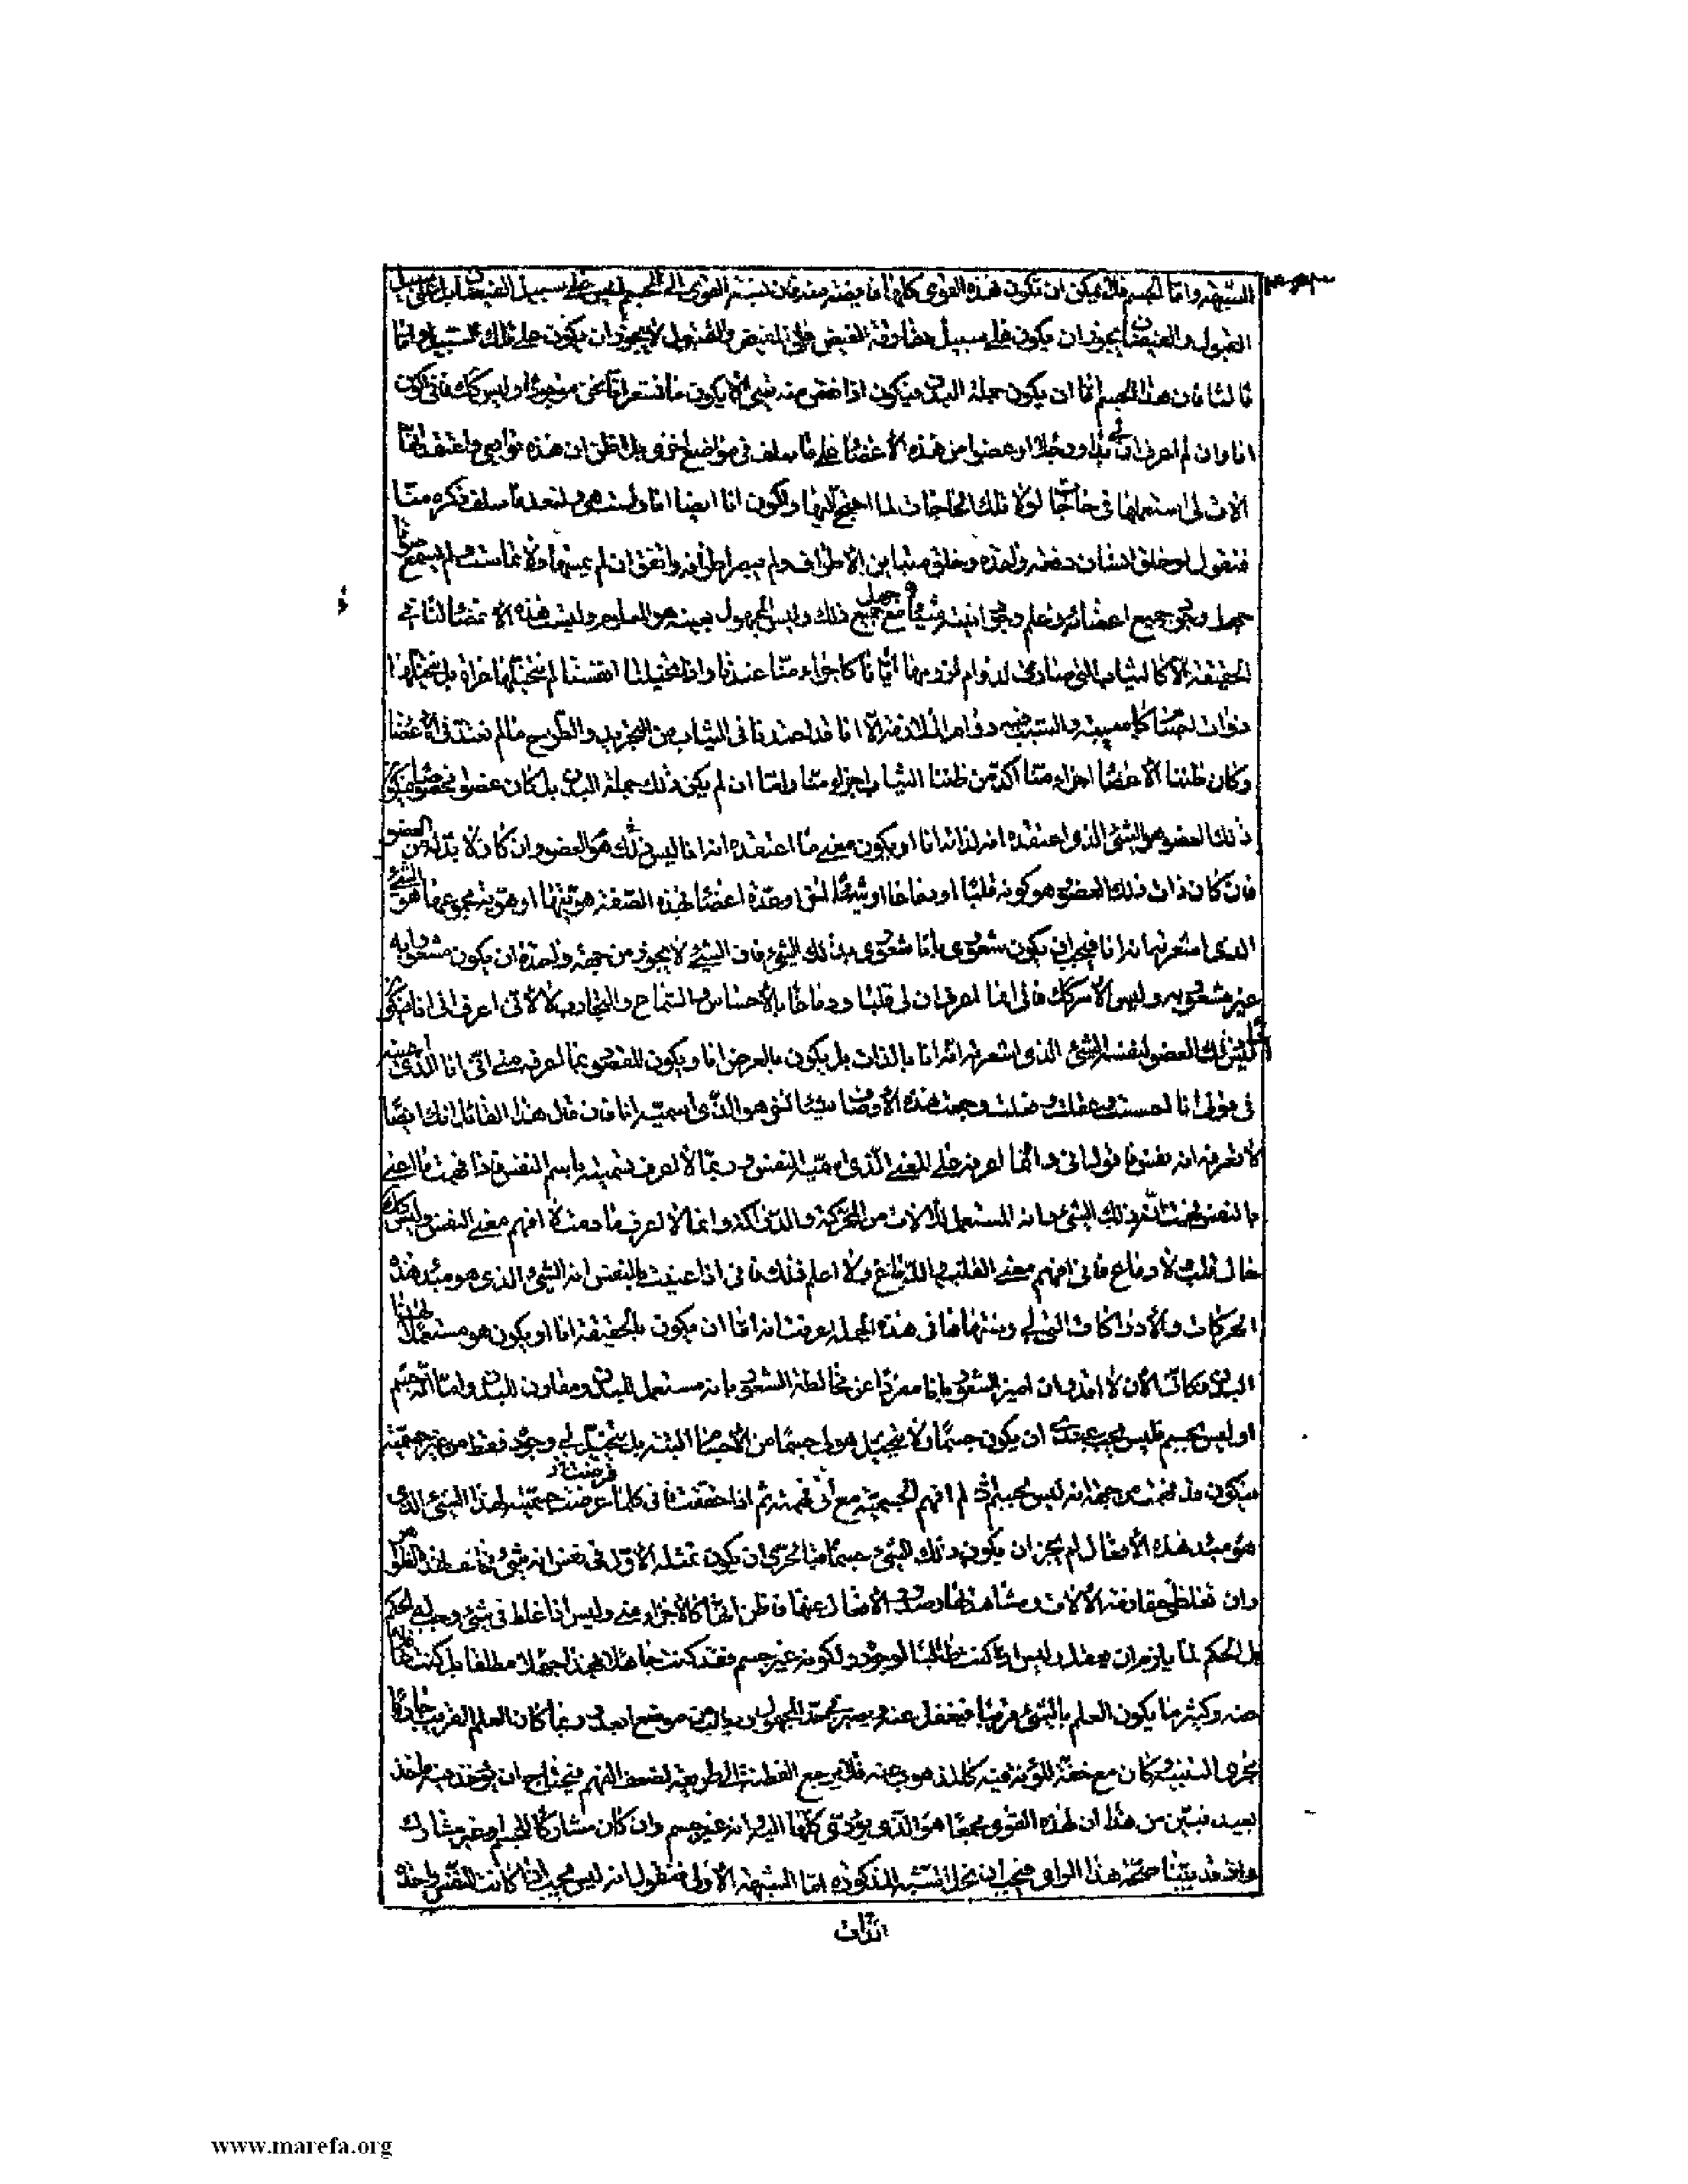 الشبهة واما الجسم فلا يمكن ان تكون هذه القوى كلها فايضة منه فان نسبة القوى الى الجسم ليس على سبيل الفيضان بل على سبيل
القبول والفيضان يجوز ان يكون على سبيل مفارقة الفيض عن المفيض والقبول لا يجوز ان يكون على تلك السبيل واما
ثالثا فان هذا الجسم اما ان يكون جملة البدن فيكون اذا نقص منه شئ لا يكون ما نشعر انا نحن موجودا وليس كك فانى اكون
انا وان لم اعرف ان لى يدا ورجلا او عضوا من هذه الاعضاء على ما سلف فى مواضع اخرى بل اظن ان هذه توابعى واعتقد انها
آلات لى استعملها فى حاجات لولا تلك الحاجات لما احتيج اليها واكون انا ايضا انا ولست هى ولنعد ما سلف ذكره منا
فنقول لو خلق انسان دفعة واحدة وخلق متباين الاطراف ولم يبصر اطرافه واتفق ان لم يمسها ولا تماست ولم يسمع صوتا
جهل وجود جميع اعضائه وعلم وجود انيته شيئا مع جهل جميع ذلك وليس المجهول بعينه هو المعلوم وليست هذه الاعضاء لنا فى
الحقيقة الا كالثياب التى صارت لدوام لزومها ايانا كاجزاء منا عندنا واذا تخيلنا انفسنا لم نتخيلها عراة بل نتخيلها
ذوات اجسام كاسية والسبب فيه دوام الملازمة الا انا قد اعتدنا فى الثياب من التجريد والطرح ما لم نعتد فى الاعضاء
وكان ظننا الاعضاء اجزاء منا آكد من ظننا الثياب اجزاء منا واما ان لم يكن ذلك جملة البدن بل كان عضوا مخصوصا فيكون
ذلك العضو هو الشئ الذى اعتقده انه لذاته انا او يكون معنى ما اعتقده انه انا ليس ذلك هو العضو وان كان لا بد له من العضو
فان كان ذات ذلك العضو هو كونه قلبا او دماغا او شيئا آخر او عدة اعضاء بهذه الصفة هويتها او هوية مجموعها هو الشئ
الذى اشعر به انه انا فيجب ان يكون شعورى بانا شعورى بذلك الشئ فان الشئ لا يجوز من جهة واحدة ان يكون مشعورا به
غير مشعور به وليس الامر كك فانى انما اعرف ان لى قلبا ودماغا بالاحساس والسماع والتجارب لا لانى اعرف انى انا فيكون
اذا ليس ذلك العضو لنفسه الشئ الذى اشعر به انه انا بالذات بل يكون بالعرض انا ويكون المقصود بما اعرفه منى انى انا الذى اعنيه
فى قولى انا احسست وعقلت وفعلت وجمعت هذه الاوصاف شيئا آخر هو الذى اسميه انا فان قال هذا القائل انك ايضا
لا تعرفه انه نفس فاقول انى دائما اعرفه على المعنى الذى اسميه النفس وربما لا اعرف تسميته باسم النفس فاذا فهمت ما اعنى
بالنفس فهمت انه ذلك الشئ وانه المستعمل للآلات من المحركة والدراكة وانما لا اعرف ما دمت لا افهم معنى النفس وليس كذلك
حال قلب ولا دماغ فانى افهم معنى القلب والدماغ ولا اعلم ذلك فانى اذا عنيت بالنفس انه الشئ الذى هو مبدأ هذه
الحركات والادراكات التى لى ومنتهاها فى هذه الجملة عرفت انه اما ان يكون بالحقيقة انا او يكون هو مستعملا لهذا
البدن فكانى الآن لا اقدر ان اميز الشعور بانا مفردا عن مخالطة الشعور بانه مستعمل للبدن ومقارن للبدن واما انه جسم
او ليس بجسم فليس يجب عندى ان يكون جسما ولا يتخيل هو لى جسما من الاجسام البتة بل يتخيل لى وجود فقط من غير جسمية
فيكون قد فهمت من جهة انه ليس بجسم اذ لم افهم الجسمية مع انى فهمته ثم اذا حققت فانى كلما عرضت فرضت جسمية لهذا الشئ الذى
هو مبدأ هذه الافعال لم يجز ان يكون ذلك الشئ جسما فبالحرى ان يكون تمثله الاول فى نفسى انه شئ مخالف لهذه الظواهر
وان تغلطنى مقارنة الآلات ومشاهدتها وصدور الافعال عنها فاظن انها كالاجزاء منى وليس اذا غلط فى شئ وجب له حكم
بل الحكم لما يلزم ان يعقل وليس اذا كنت طالبا لوجوده ولكونه غير جسم فقد كنت جاهلا بهذا جهلا مطلقا بل كنت غافلا
عنه وكثيرا ما يكون العلم بالشئ قريبا فيغفل عنه ويصير بحد المجهول ويطلب من موضع ابعد وربما كان العلم القريب جاريا
مجرى التنبيه وكان مع خفة المؤونة فيه كالمذهوب عنه فلا يرجع الفطنة الى طريقه لضعف الفهم فيحتاج ان يؤخذ فيه مأخذ
بعيد فبين من هذا ان لهذه القوى مجمعا هو الذى يؤدى كلها اليه وانه غير جسم وان كان مشاركا للجسم او غير مشارك
واذ قد بينا صحة هذا الراى فيجب ان نحل الشبه المذكورة اما الشبهة الاولى فنقول انه ليس يجب اذا كانت النفس واحدة
الذات
www.marefa.org